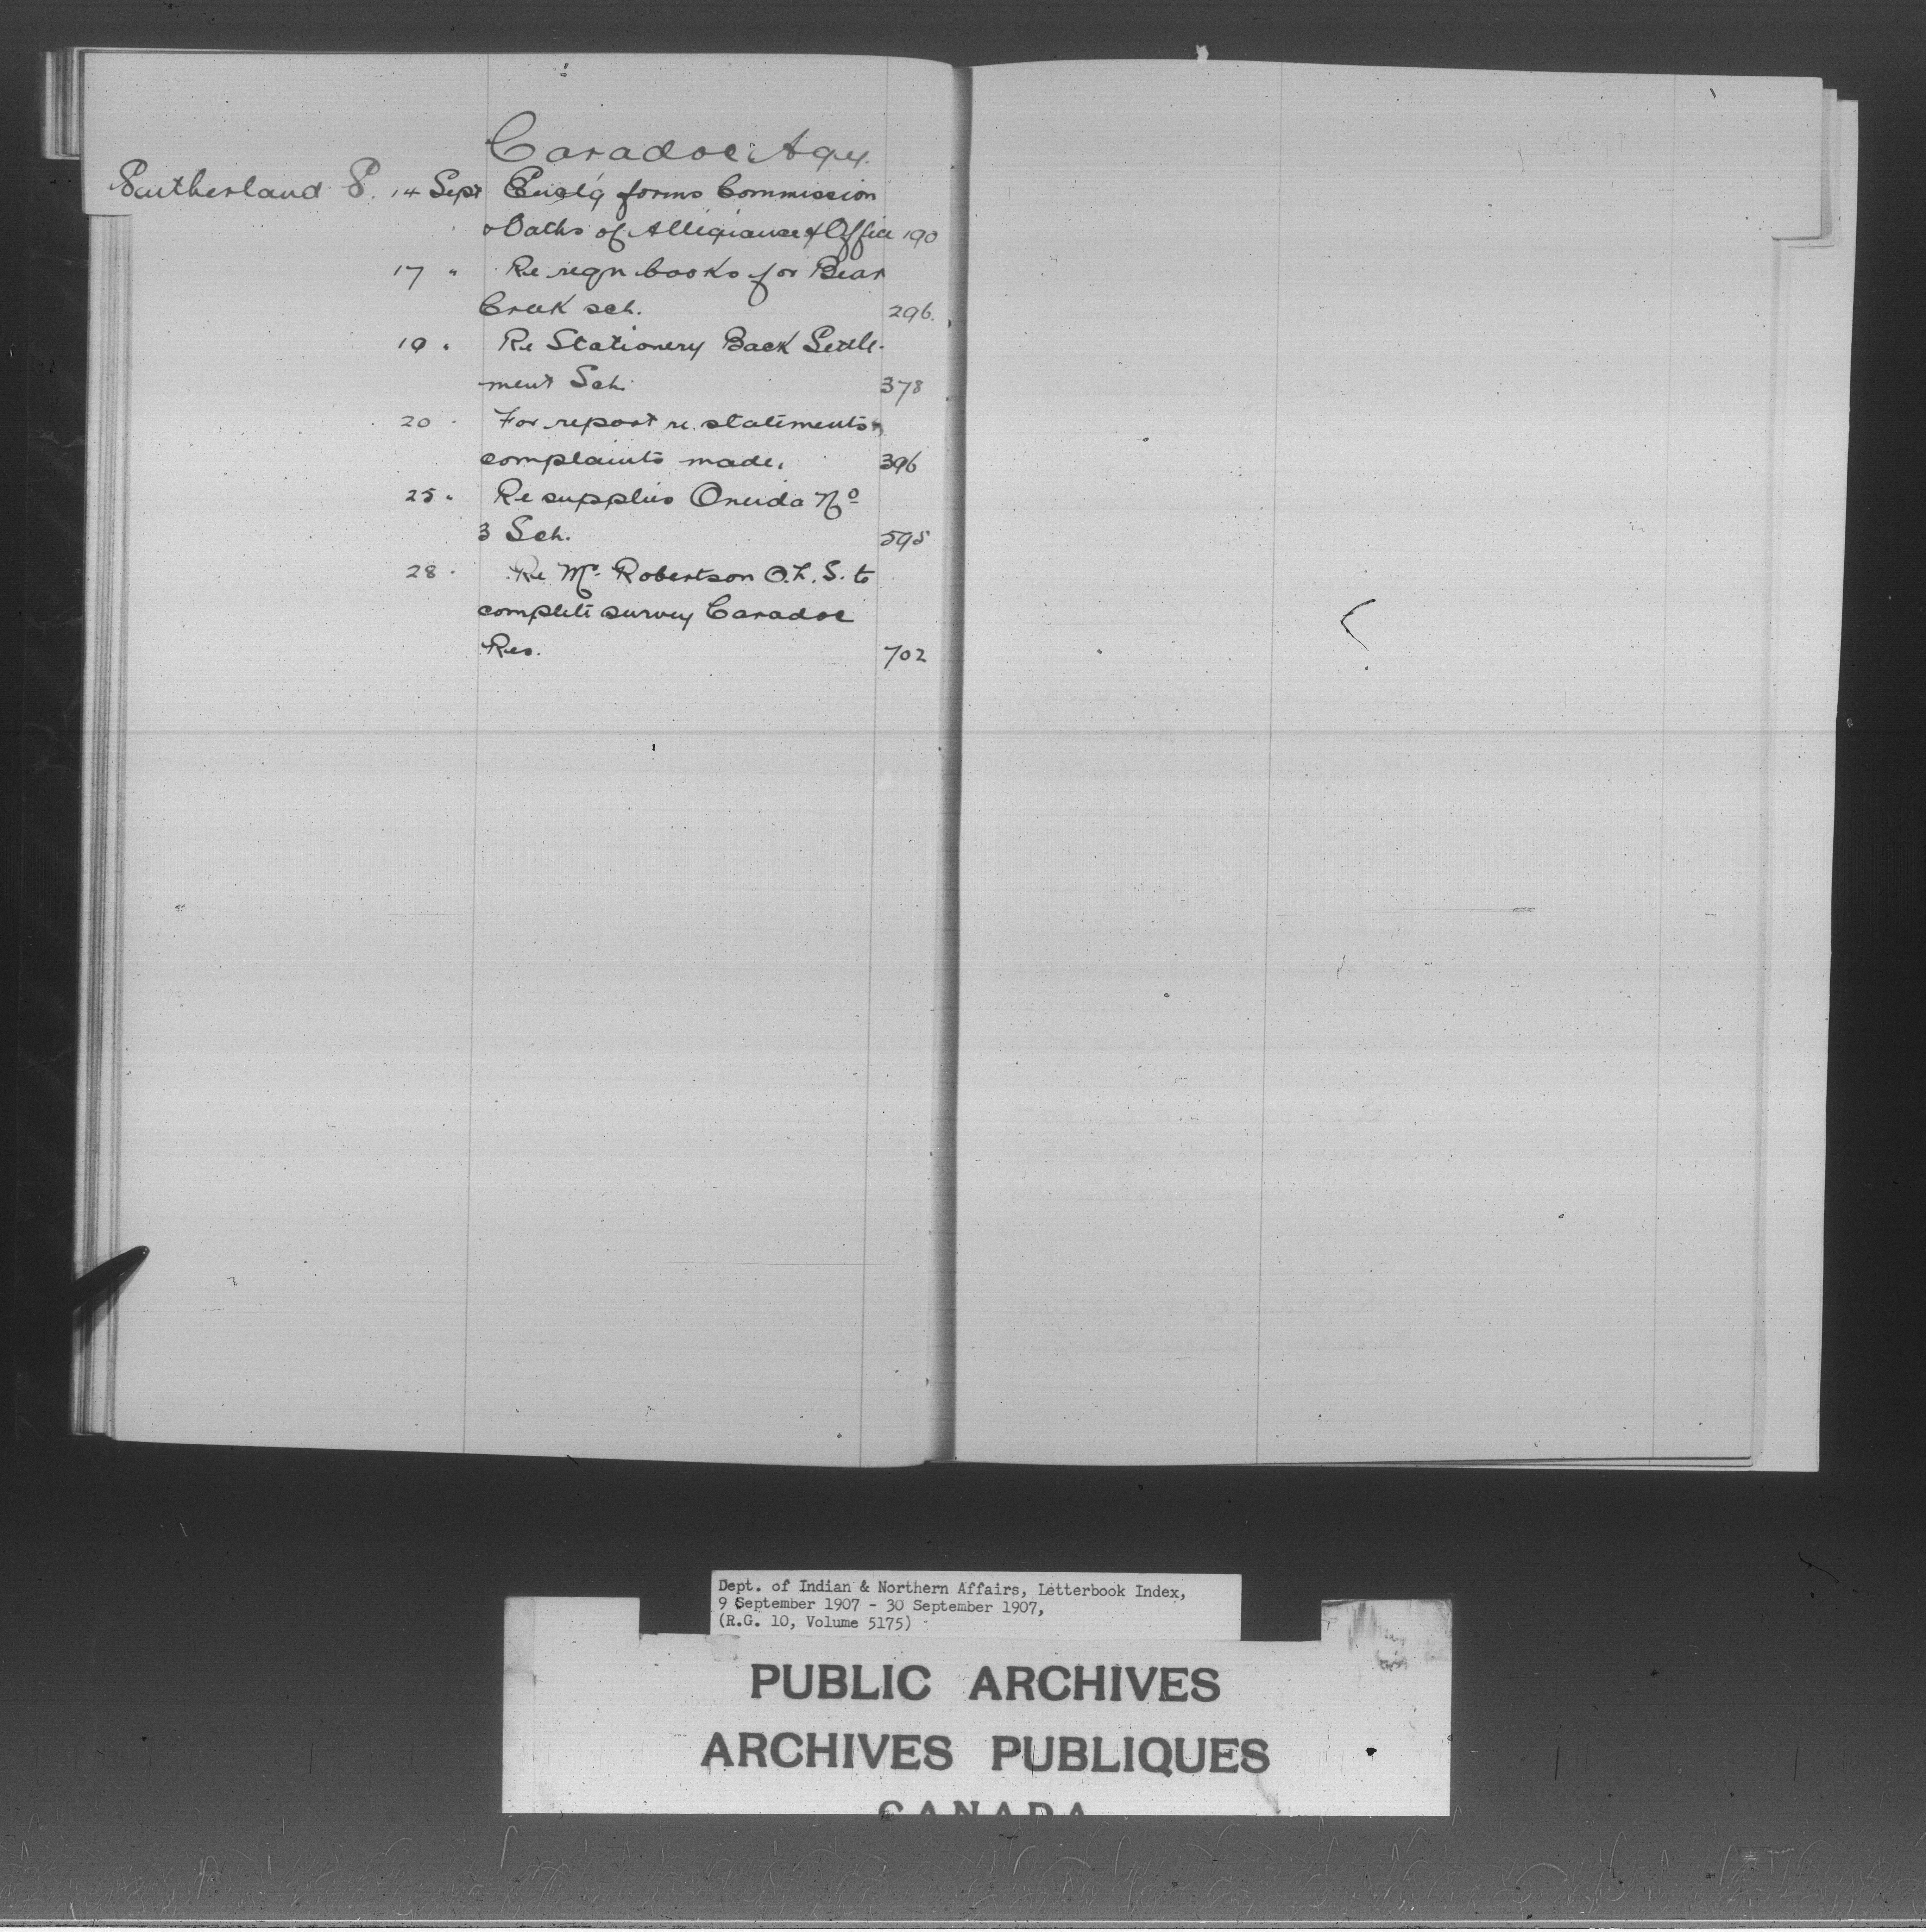 Caradoc Agy.
Sutherland S. 14 Sept Enclg forms Commission
& Oaths of Allegiance & Office 190
17 " Re reqn books for Bear
Creek sch. 296.
19 " Re Stationery Back Settle-
ment Sch. 378
20 " For report re statements &
complaints made. 396
25 " Re supplies Oneida No
3 Sch. 595
28 " Re Mr. Robertson O.L.S. to
complete survey Caradoc
Res. 702
Dept. of Indian & Northern Affairs, Letterbook Index,
9 September 1907 - 30 September 1907,
(R.G. 10, Volume 5175)
PUBLIC ARCHIVES
ARCHIVES PUBLIQUES
CANADA